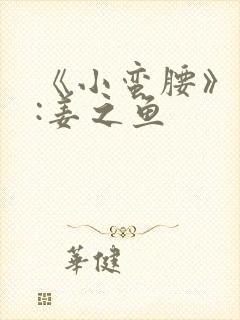 《小蛮腰》
:姜之鱼
華健